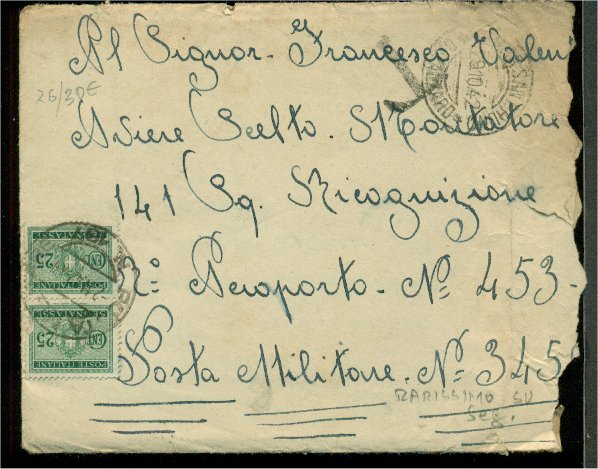 Al Signor. Francesco Valen
26/30E
Aviere Scelto. Montatore
141 Sq. Ricognizione
Rº Aeroporto. Nº 453-
Posta Militare. Nº 345
RARISSIMO SU
Seg.
T
SEGNATASSE
25 CEN
POSTE ITALIANE
SEGNATASSE
25 CEN
POSTE ITALIANE